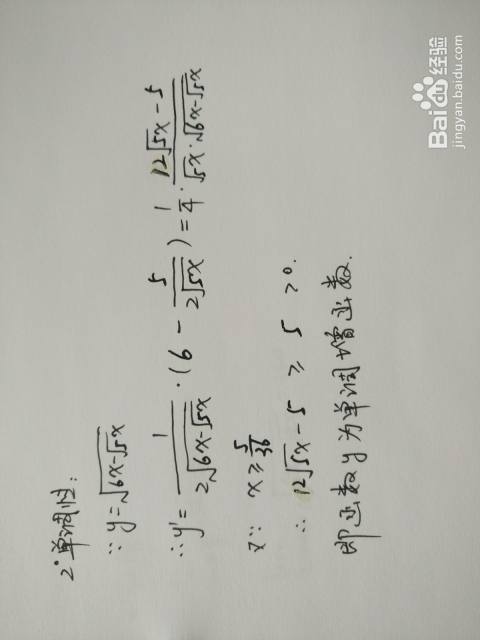 2°单调性:
∵ y=√(6x-√5x)
∴ y'= 1/(2√(6x-√5x)) ·(6 - 5/(2√5x)) = 1/4 · (12√5x - 5)/(√5x · √(6x-√5x))
又∵ x ≥ 5/36
∴ 12√5x - 5 ≥ 5 > 0.
即函数y为单调增函数.
Baidu经验
jingyan.baidu.com